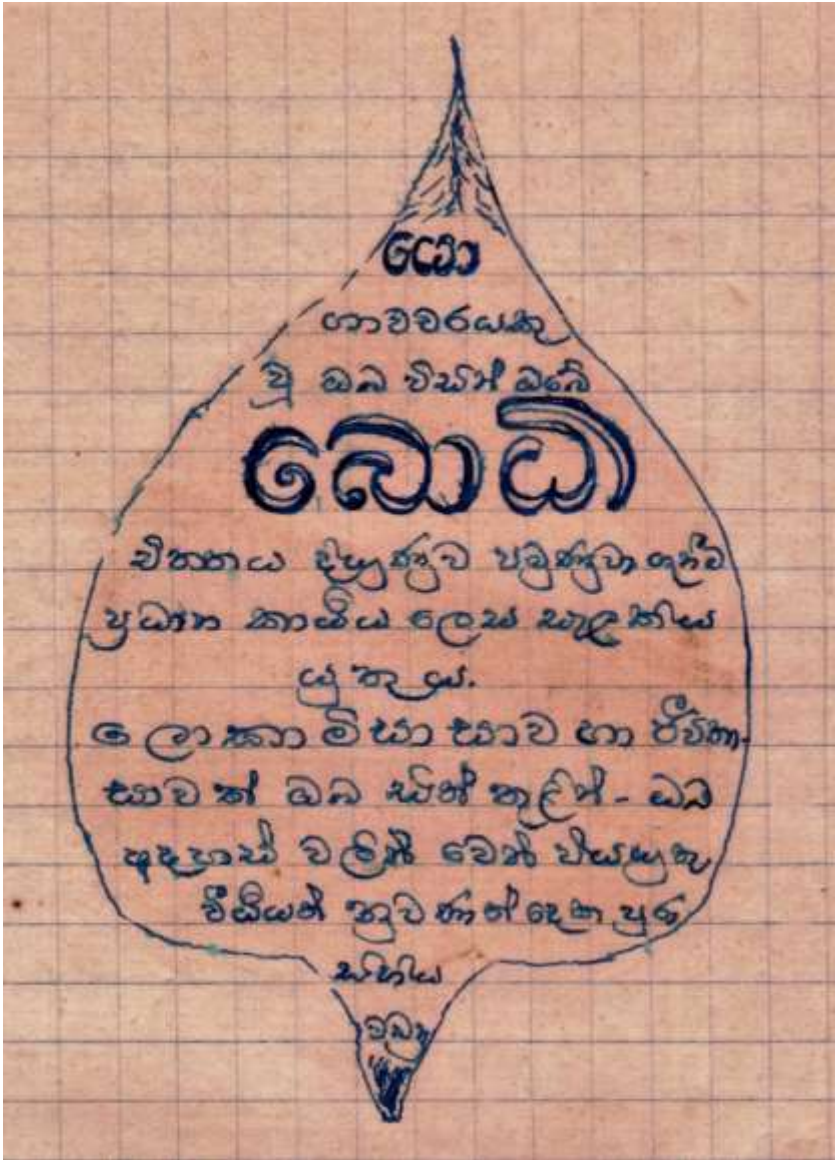 යො
ගාවචරයකු
වූ ඔබ විසින් ඔබේ
බොධි
චිත්තය දියුණුව පමුණුවා ගැනීම
ප්‍රධාන කාර්ය්‍ය ලෙස සැලකිය
යුතු ය.
ලොකාමිසාසාව හා ජීවිතා-
සාවත් ඔබ සිත් තුළින් - ඔබ
අදහස් වලින් වෙන්
වීර්ය්‍යයත් නුවණත් දෙක පුරා
සහිය